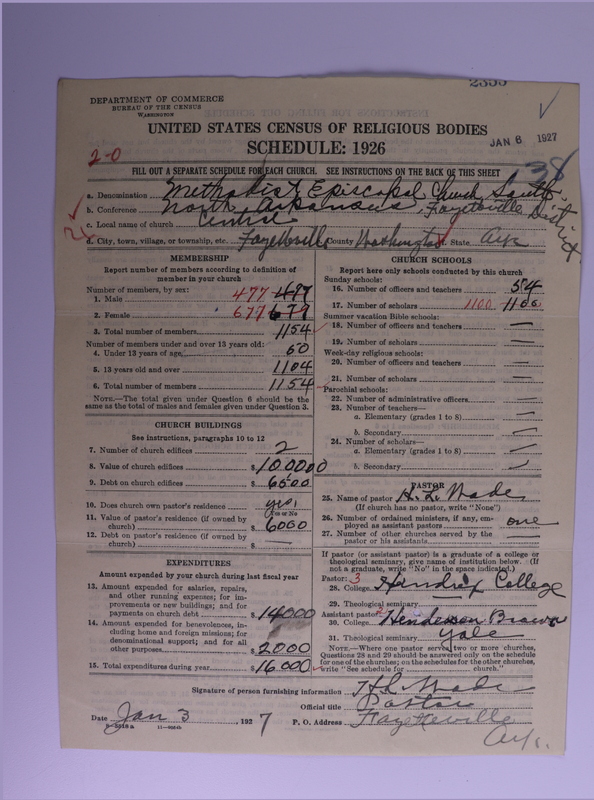 2333
DEPARTMENT OF COMMERCE
BUREAU OF THE CENSUS
WASHINGTON
UNITED STATES CENSUS OF RELIGIOUS BODIES
SCHEDULE: 1926
JAN 6 1927
2-0
38
FILL OUT A SEPARATE SCHEDULE FOR EACH CHURCH. SEE INSTRUCTIONS ON THE BACK OF THIS SHEET
a. Denomination Methodist Episcopal Church, South
b. Conference North Arkansas, Fayetteville District
c. Local name of church Central
d. City, town, village, or township, etc. Fayetteville County Washington State Ark
MEMBERSHIP
Report number of members according to definition of
member in your church
Number of members, by sex:
1. Male 477 477
2. Female 677 679
3. Total number of members 1154
Number of members under and over 13 years old:
4. Under 13 years of age 50
5. 13 years old and over 1104
6. Total number of members 1154
NOTE.—The total given under Question 6 should be the
same as the total of males and females given under Question 3.
CHURCH BUILDINGS
See instructions, paragraphs 10 to 12
7. Number of church edifices 2
8. Value of church edifices $ 100000
9. Debt on church edifices $ 6500
10. Does church own pastor's residence? yes
Yes or No
11. Value of pastor's residence (if owned by
church) $ 6000
12. Debt on pastor's residence (if owned by
church) $ —
EXPENDITURES
Amount expended by your church during last fiscal year
13. Amount expended for salaries, repairs,
and other running expenses; for im-
provements or new buildings; and for
payments on church debt $ 14000
14. Amount expended for benevolences, in-
cluding home and foreign missions; for
denominational support; and for all
other purposes $ 2000
15. Total expenditures during year $ 16000
CHURCH SCHOOLS
Report here only schools conducted by this church
Sunday schools:
16. Number of officers and teachers 54
17. Number of scholars 1100 1100
Summer vacation Bible schools:
18. Number of officers and teachers —
19. Number of scholars —
Week-day religious schools:
20. Number of officers and teachers —
21. Number of scholars —
Parochial schools:
22. Number of administrative officers —
23. Number of teachers—
a. Elementary (grades 1 to 8) —
b. Secondary —
24. Number of scholars—
a. Elementary (grades 1 to 8) —
b. Secondary —
PASTOR
25. Name of pastor H. L. Wade
(If church has no pastor, write "None")
26. Number of ordained ministers, if any, em-
ployed as assistant pastors one
27. Number of other churches served by the
pastor or his assistants
If pastor (or assistant pastor) is a graduate of a college or
theological seminary, give name of institution below. (If
not a graduate, write "No" in the space indicated.)
Pastor: 3
28. College Hendrix College
29. Theological seminary
Assistant pastor:
30. College Henderson Brown
31. Theological seminary Yale
NOTE.—Where one pastor serves two or more churches,
Questions 28 and 29 should be answered only on the schedule
for one of the churches; on the schedules for the other churches,
write "See schedule for church."
Signature of person furnishing information H L Wade
Official title Pastor
Date Jan 3, 1927 P. O. Address Fayetteville
Ark.